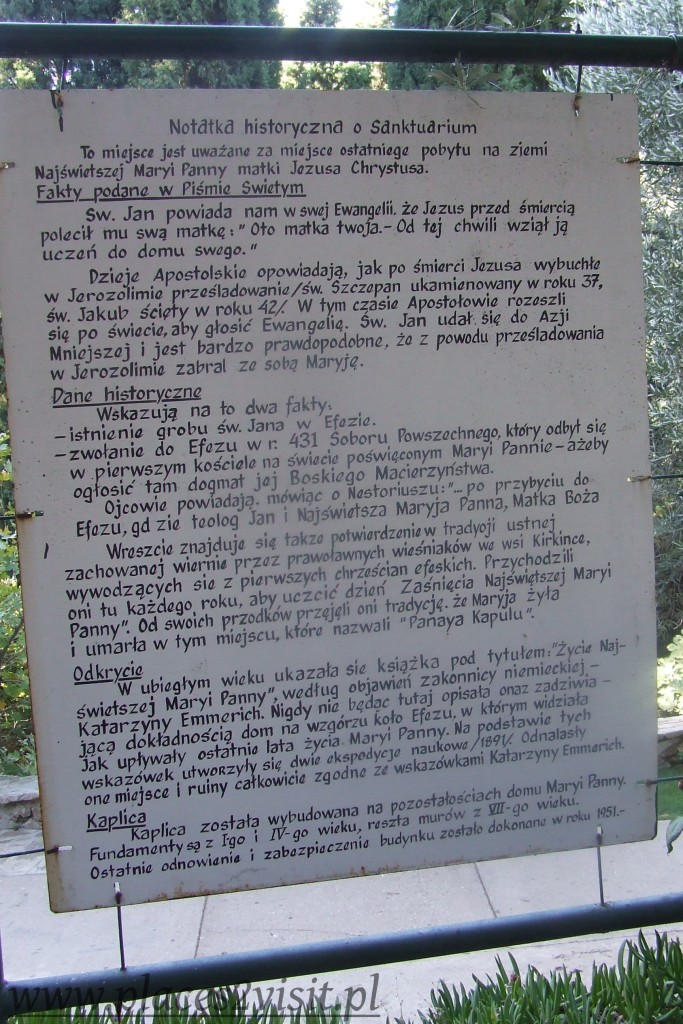 Notatka historyczna o Sanktuarium
To miejsce jest uważane za miejsce ostatniego pobytu na ziemi
Najświętszej Maryi Panny matki Jezusa Chrystusa.
Fakty podane w Piśmie Swietym
Św. Jan powiada nam w swej Ewangelii. że Jezus przed śmiercią
polecił mu swą matkę: "Oto matka twoja.- Od tej chwili wziął ją
uczeń do domu swego."
Dzieje Apostolskie opowiadają, jak po śmierci Jezusa wybuchłe
w Jerozolimie prześladowanie/św. Szczepan ukamienowany w roku 37,
św. Jakub ścięty w roku 42/. W tym czasie Apostołowie rozeszli
się po świecie, aby głosić Ewangelię. Św. Jan udał się do Azji
Mniejszej i jest bardzo prawdopodobne, że z powodu prześladowania
w Jerozolimie zabrał ze sobą Maryję.
Dane historyczne
Wskazują na to dwa fakty:
-istnienie grobu św. Jana w Efezie.
-zwołanie do Efezu w r. 431 Soboru Powszechnego, który odbył się
w pierwszym kościele na świecie poświęconym Maryi Pannie-ażeby
ogłosić tam dogmat jej Boskiego Macierzyństwa.
Ojcowie powiadają. mówiąc o Nestoriuszu: "... po przybyciu do
Efezu, gd zie teolog Jan i Najświetsza Maryja Panna, Matka Boża
Wreszcie znajduje się takze potwierdzenie w tradycji ustnej
zachowanej wiernie przez prawoławnych wieśniaków we wsi Kirkince,
wywodzących sie z pierwszych chrześcian efeskich. Przychodzili
oni tu każdego roku, aby uczcić dzień Zaśnięcia Najświętszej Maryi
Panny". Od swoich przodków przejęli oni tradycję. że Maryja żyła
i umarła w tym miejscu, które nazwali "Panaya Kapulu".
Odkrycie
W ubiegłym wieku ukazała sie książka pod tytułem: "Życie Naj-
świetszej Maryi Panny", według objawień zakonnicy niemieckiej-
Katarzyny Emmerich. Nigdy nie będąc tutaj opisała onaz zadziwia-
jącą dokładnością dom na wzgórzu koło Efezu, w którym widziała
Jak upływały ostatnie lata życia Maryi Panny. Na podstawie tych
wskazówek utworzyły się dwie ekspedycje naukowe/1891/. Odnalasły
one miejsce i ruiny całkowicie zgodne ze wskazówkami Katarzyny Emmerich.
Kaplica
Kaplica została wybudowana na pozostałościach domu Maryi Panny.
Fundamenty są z Igo i IV-go wieku, reszta murów z VII-go wieku.
Ostatnie odnowienie i zabezpieczenie budynku zostało dokonane w roku 1951.-
www.places2visit.pl